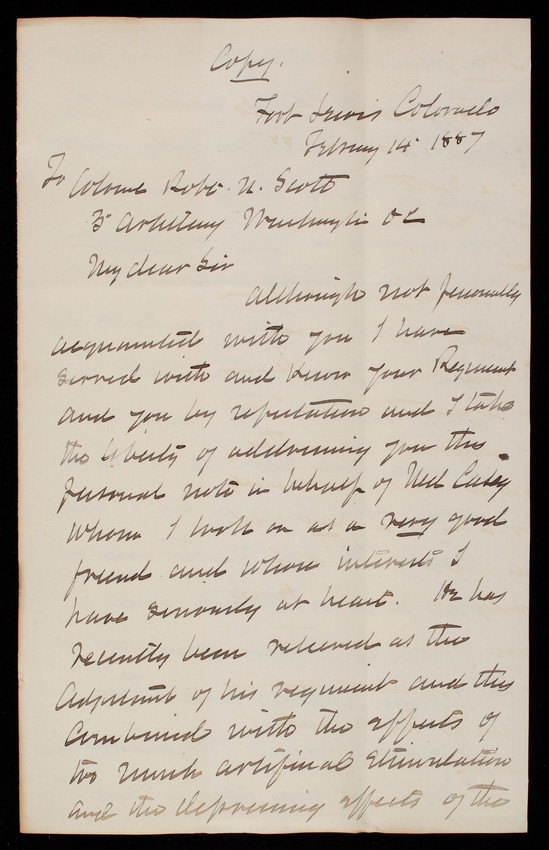 Copy.
Fort Lewis Colorado
February 14th 1887
To Colonel Robt. N. Scott
3d Artillery Washington DC
My dear Sir
although not personally
acquainted with you I have
served with and know your Regiment
and you by reputation and I take
the liberty of addressing you this
personal note in behalf of Casey
whom I look on as a very good
friend and whose interests I
have seriously at heart. He has
recently been relieved as the
Adjutant of his regiment and this
combined with the effects of
too much artificial stimulation
and the depressing effects of the